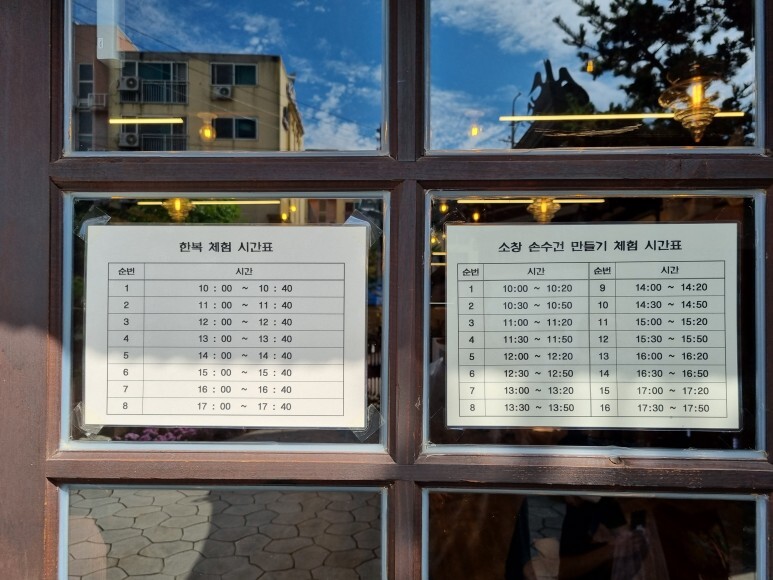 한복 체험 시간표
순번 시간
1 10 : 00 ~ 10 : 40
2 11 : 00 ~ 11 : 40
3 12 : 00 ~ 12 : 40
4 13 : 00 ~ 13 : 40
5 14 : 00 ~ 14 : 40
6 15 : 00 ~ 15 : 40
7 16 : 00 ~ 16 : 40
8 17 : 00 ~ 17 : 40
소창 손수건 만들기 체험 시간표
순번 시간 순번 시간
1 10:00 ~ 10:20 9 14:00 ~ 14:20
2 10:30 ~ 10:50 10 14:30 ~ 14:50
3 11:00 ~ 11:20 11 15:00 ~ 15:20
4 11:30 ~ 11:50 12 15:30 ~ 15:50
5 12:00 ~ 12:20 13 16:00 ~ 16:20
6 12:30 ~ 12:50 14 16:30 ~ 16:50
7 13:00 ~ 13:20 15 17:00 ~ 17:20
8 13:30 ~ 13:50 16 17:30 ~ 17:50